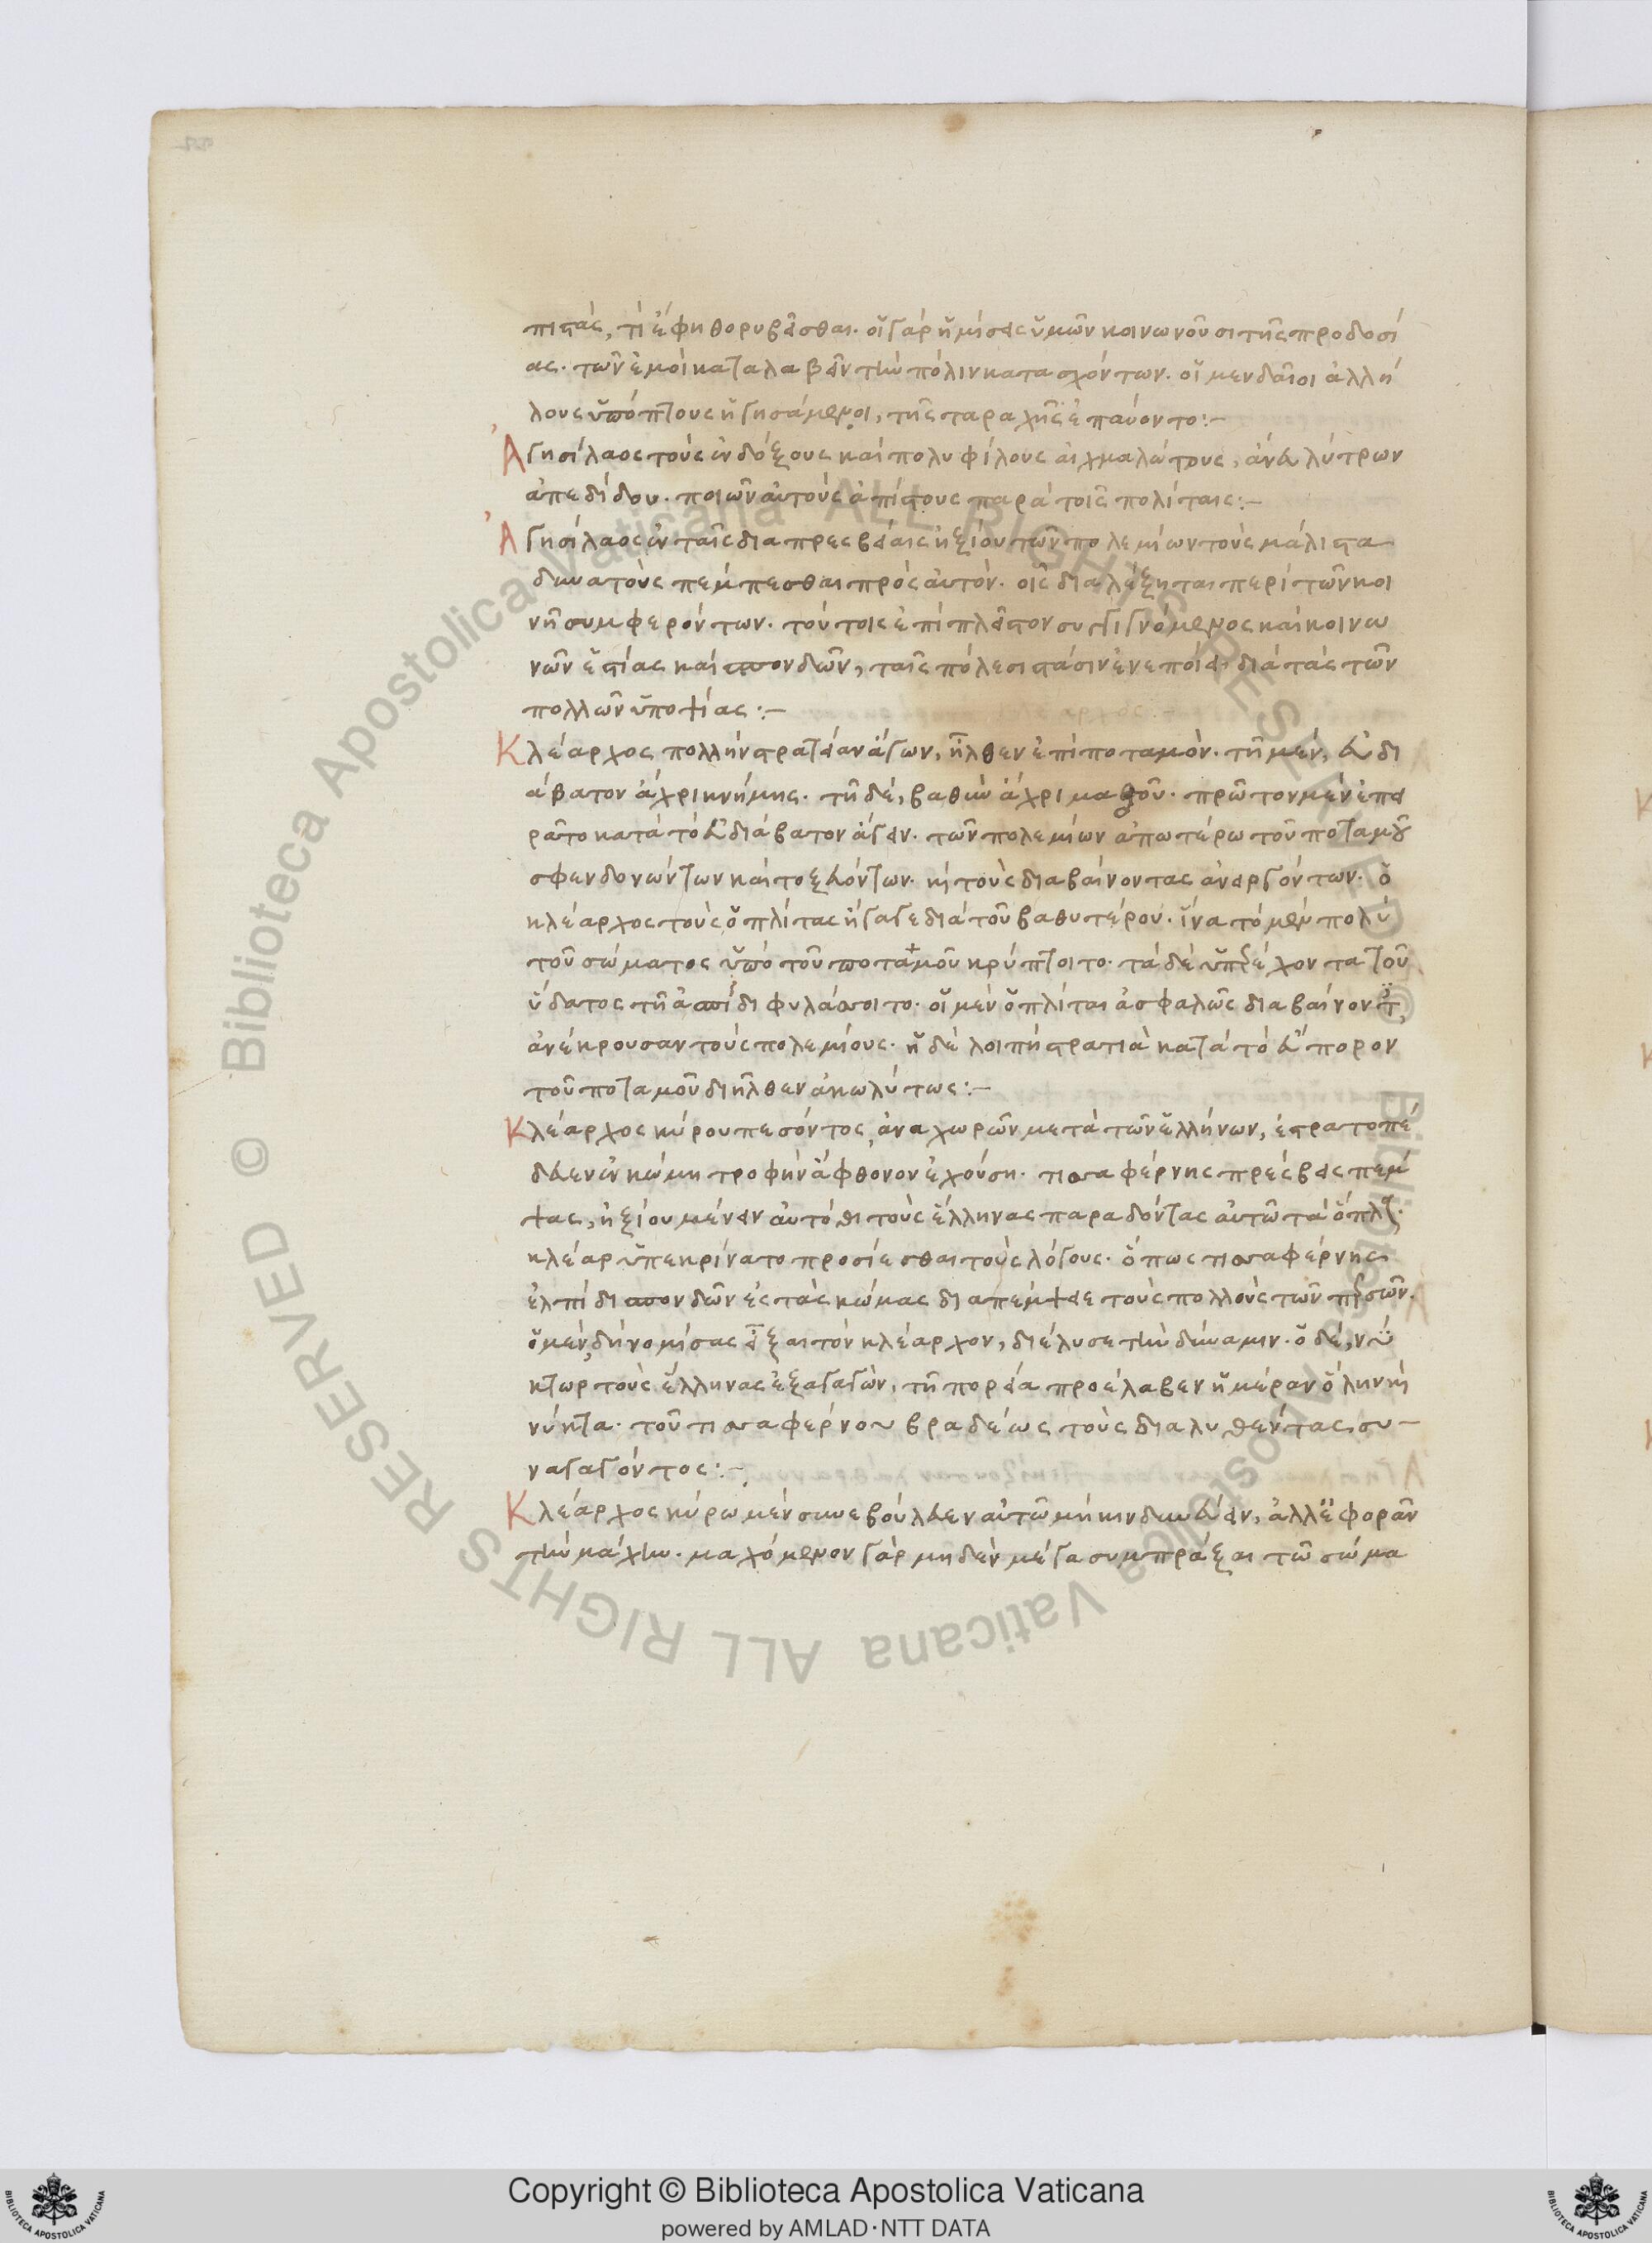 πιστάς, τί ἔφη θορυβεῖσθαι· οἱ γὰρ ἡμίσεις ὑμῶν κοινωνοῦσι τῆς προδοσί
ας· τῶν ἐμοὶ καταλαβεῖν τὴν πόλιν κατασχόντων· οἱ μενδαῖοι ἀλλή
λους ὑπόπτους ἡγησάμενοι, τῆς ταραχῆς ἐπαύοντο:–
Ἀγησίλαος τοὺς ἐνδόξους καὶ πολυφίλους αἰχμαλώτους, ἄνευ λύτρων
ἀπεδίδου· ποιῶν αὐτοὺς ἀπίστους παρὰ τοῖς πολίταις:–
Ἀγησίλαος ἐν ταῖς διαπρεσβείαις ἠξίου τῶν πολεμίων τοὺς μάλιστα
δυνατοὺς πέμπεσθαι πρὸς αὐτόν· οἷς διαλέξηται περὶ τῶν κοι
νῇ συμφερόντων· τούτοις ἐπὶ πλεῖστον συγγιγνόμενος καὶ κοινω
νῶν ἑστίας καὶ σπονδῶν, ταῖς πόλεσι στάσιν ἐνεποίει διὰ τὰς τῶν
πολλῶν ὑποψίας:–
Κλέαρχος πολλὴν στρατείαν ἄγων, ἦλθεν ἐπὶ ποταμόν· τῇ μέν, εὐδι
άβατον ἄχρι κνήμης· τῇ δέ, βαθὺν ἄχρι μασθοῦ· πρῶτον μὲν ἐπει
ρᾶτο κατὰ τὸ εὐδιάβατον ἄγειν· τῶν πολεμίων ἀπωτέρω τοῦ ποταμοῦ
σφενδονώντων καὶ τοξευόντων· καὶ τοὺς διαβαίνοντας ἀνειργόντων· ὁ
κλέαρχος τοὺς ὁπλίτας ἤγαγε διὰ τοῦ βαθυτέρου· ἵνα τὸ μὲν πολὺ
τοῦ σώματος ὑπὸ τοῦ ποταμοῦ κρύπτοιτο· τὰ δὲ ὑπερέχοντα τοῦ
ὕδατος τῇ ἀσπίδι φυλάσσοιτο· οἱ μὲν ὁπλῖται ἀσφαλῶς διαβαίνοντες,
ἀνέκρουσαν τοὺς πολεμίους· ἡ δὲ λοιπὴ στρατιὰ κατὰ τὸ εὔπορον
τοῦ ποταμοῦ διῆλθεν ἀκωλύτως:–
Κλέαρχος κύρου πεσόντος, ἀναχωρῶν μετὰ τῶν ἑλλήνων, ἐστρατοπέ
δευεν ἐν κώμη τροφὴν ἄφθονον ἐχούση· τισσαφέρνης πρέσβεις πέμ
ψας, ἠξίου μένειν αὐτόθι τοὺς ἕλληνας παραδόντας αὐτῷ τὰ ὅπλα·
κλέαρ ὑπεκρίνατο προσίεσθαι τοὺς λόγους· ὅπως τισσαφέρνης
ἐλπίδι σπονδῶν ἐς τὰς κώμας διαπέμψειε τοὺς πολλοὺς τῶν περσῶν·
ὁ μὲν, δὴ νομίσας εἶξαι τὸν κλέαρχον, διέλυσε τὴν δύναμιν· ὁ δέ, νύ
κτωρ τοὺς ἕλληνας ἐξαγαγὼν, τῇ πορεία προέλαβεν ἡμέραν ὅλην καὶ
νύκτα· τοῦ τισσαφέρνου βραδέως τοὺς διαλυθέντας συ–
ναγαγόντος:–
Κλέαρχος κύρω μὲν συνεβούλευεν αὐτῷ μὴ κινδυνεύειν, ἀλλ᾽ ἐφορᾶν
τὴν μάχην· μαχόμενον γὰρ μηδὲν μέγα συμπρᾶξαι τῷ σώμα